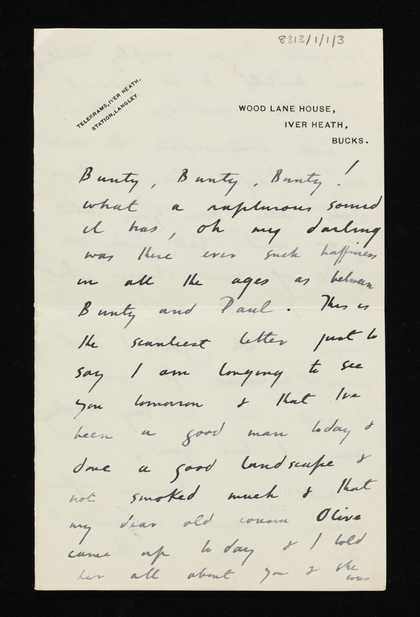 8313/1/1/3
TELEGRAMS, IVER HEATH.
STATION, LANGLEY.
WOOD LANE HOUSE,
IVER HEATH,
BUCKS.
Bunty, Bunty, Bunty!
what a rapturous sound
it has, oh my darling
was there ever such happiness
in all the ages as between
Bunty and Paul. This is
the scantiest letter just to
say I am longing to see
you tomorrow & that I've
been a good man today &
done a good landscape &
not smoked much & that
my dear old cousin Olive
came up today & I told
her all about you & she was